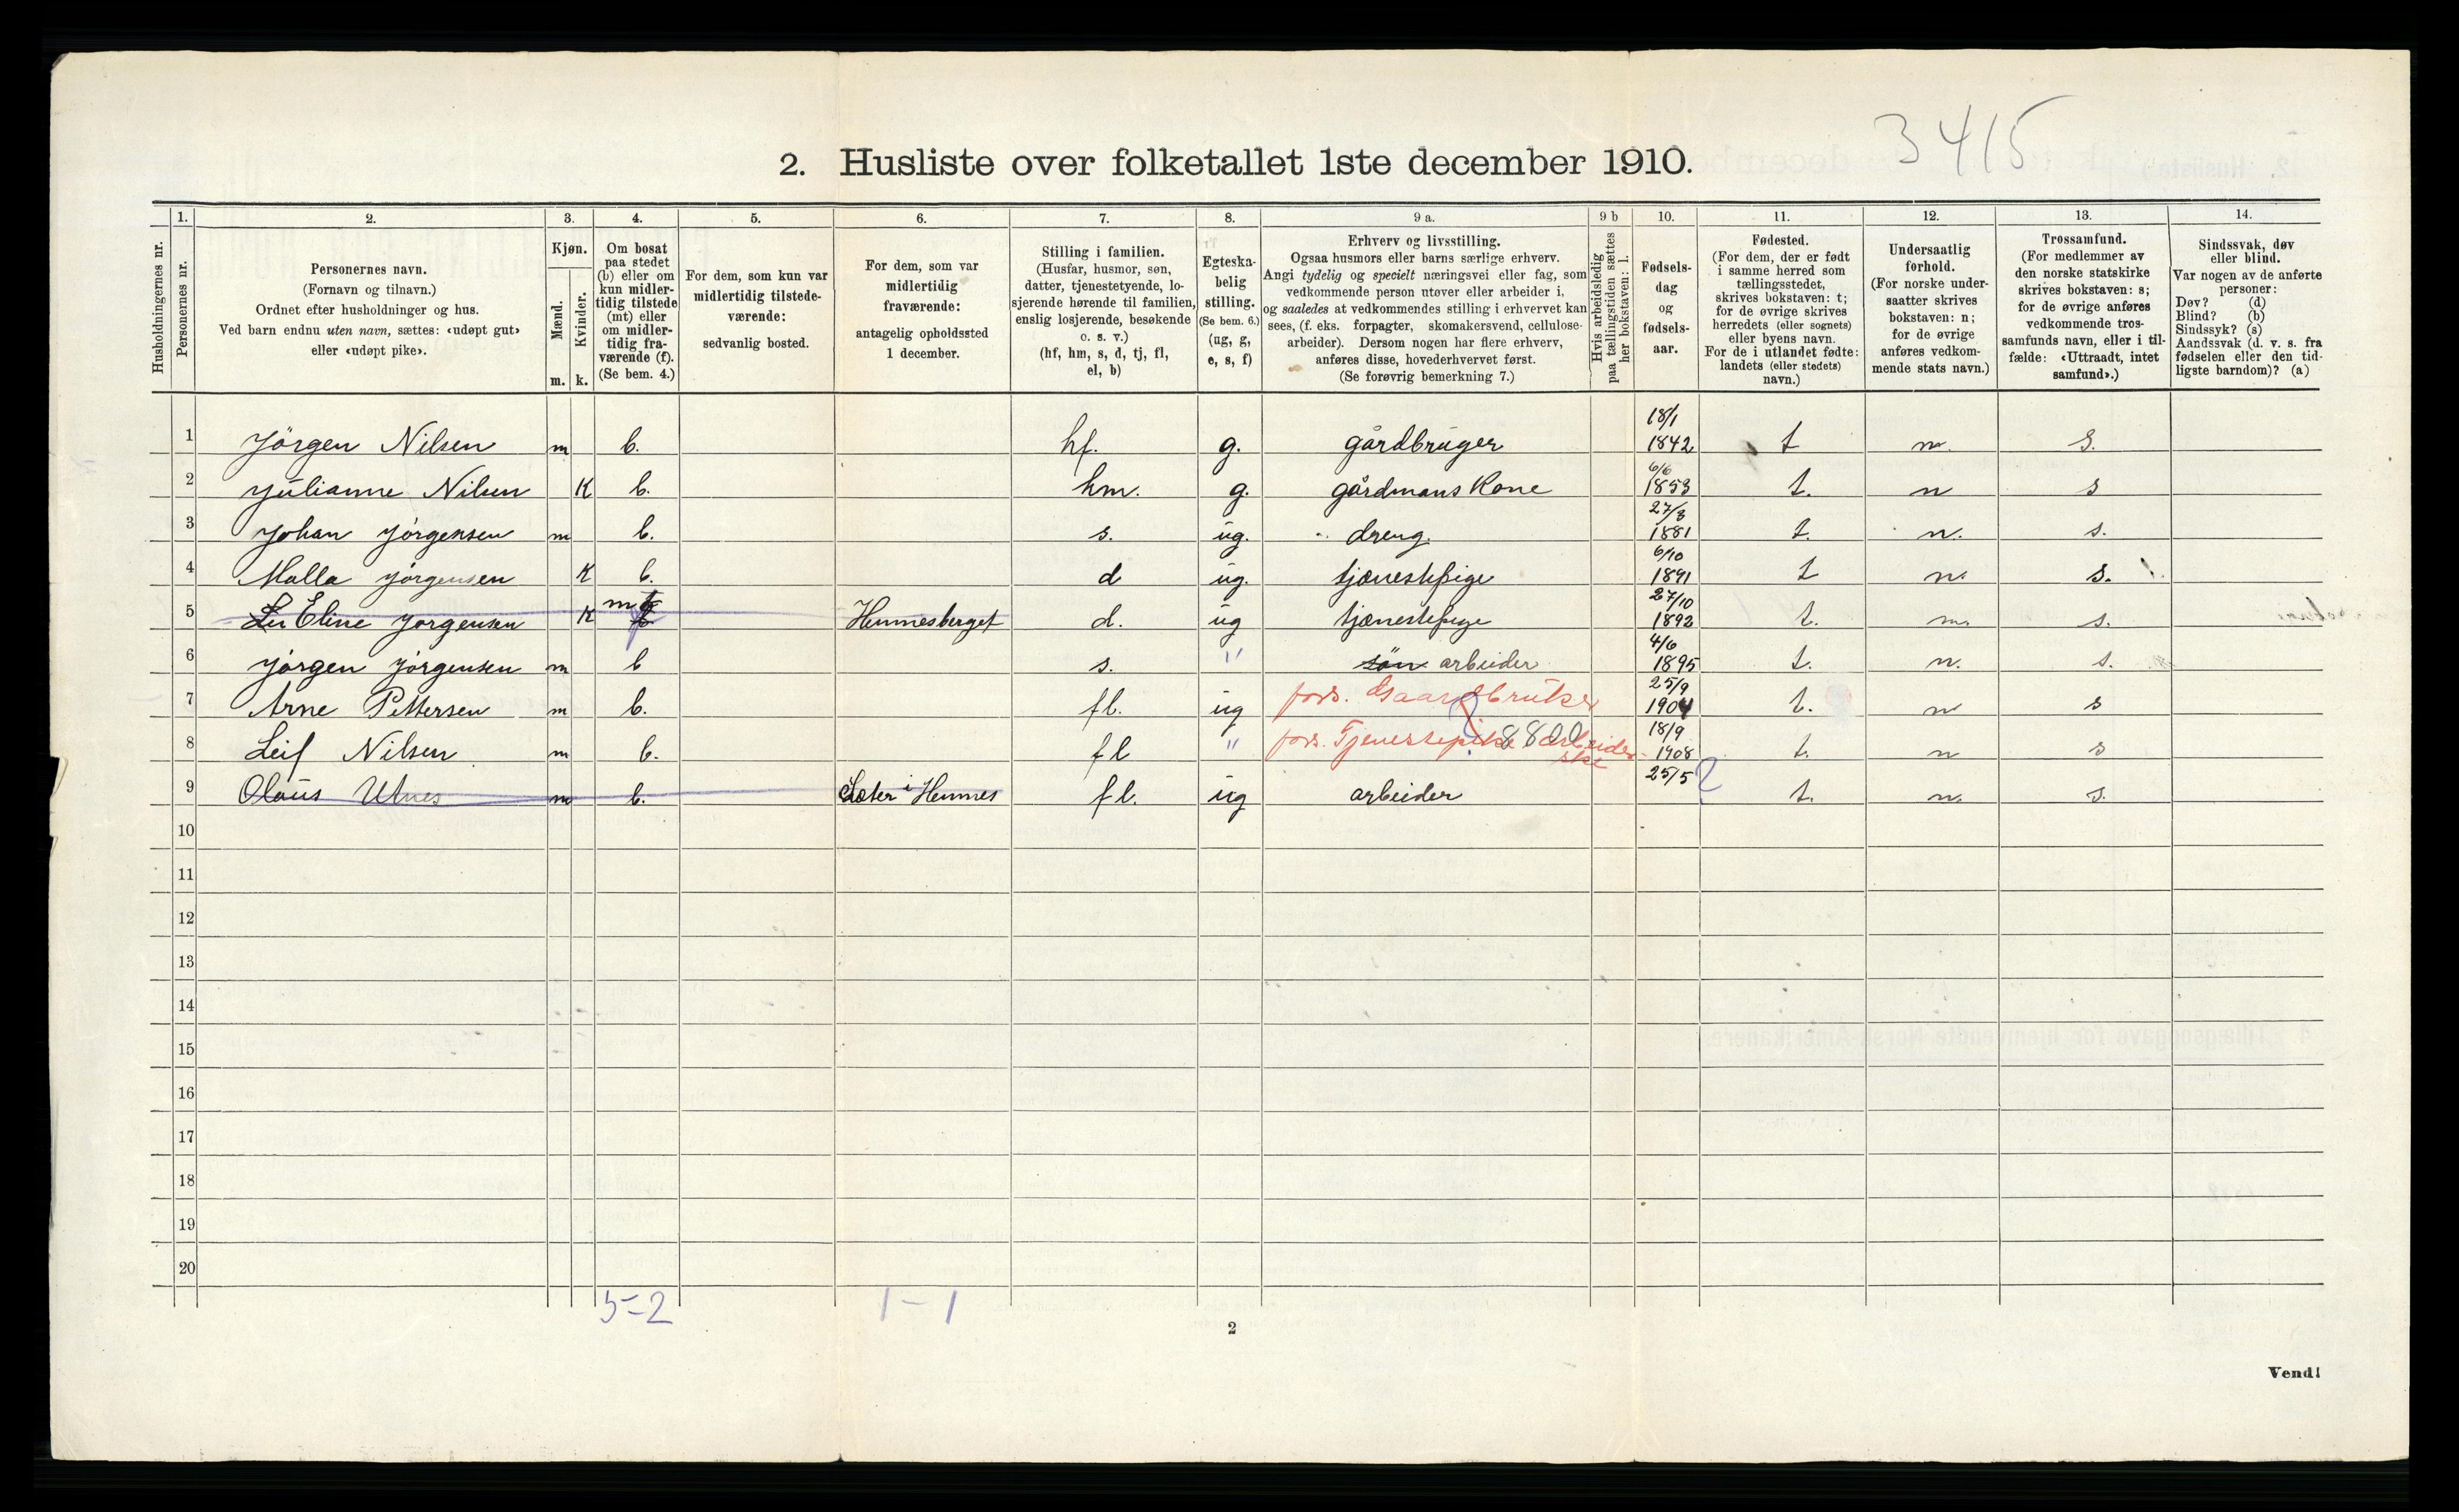 3415
2. Husliste over folketallet 1ste december 1910.
Husholdningernes nr.
1. Personernes nr.
2. Personernes navn.
(Fornavn og tilnavn.)
Ordnet efter husholdninger og hus.
Ved barn endnu uten navn, sættes: «udøpt gut»
eller «udøpt pike».
3. Kjøn.
Mænd. m.
Kvinder. k.
4. Om bosat
paa stedet
(b) eller om
kun midler-
tidig tilstede
(mt) eller
om midler-
tidig fra-
værende (f).
(Se bem. 4.)
5. For dem, som kun var
midlertidig tilstede-
værende:
sedvanlig bosted.
6. For dem, som var
midlertidig
fraværende:
antagelig opholdssted
1 december.
7. Stilling i familien.
(Husfar, husmor, søn,
datter, tjenestetyende, lo-
sjerende hørende til familien,
enslig losjerende, besøkende
o. s. v.)
(hf, hm, s, d, tj, fl,
el, b)
8. Egteska-
belig
stilling.
(Se bem. 6.)
(ug, g,
e, s, f)
9 a. Erhverv og livsstilling.
Ogsaa husmors eller barns særlige erhverv.
Angi tydelig og specielt næringsvei eller fag, som
vedkommende person utøver eller arbeider i,
og saaledes at vedkommendes stilling i erhvervet kan
sees, (f. eks. forpagter, skomakersvend, cellulose-
arbeider). Dersom nogen har flere erhverv,
anføres disse, hovederhvervet først.
(Se forøvrig bemerkning 7.)
9 b Hvis arbeidsledig
paa tællingstiden sættes
her bokstaven: l.
10. Fødsels-
dag
og
fødsels-
aar.
11. Fødested.
(For dem, der er født
i samme herred som
tællingsstedet,
skrives bokstaven: t;
for de øvrige skrives
herredets (eller sognets)
eller byens navn.
For de i utlandet fødte:
landets (eller stedets)
navn.)
12. Undersaatlig
forhold.
(For norske under-
saatter skrives
bokstaven: n;
for de øvrige
anføres vedkom-
mende stats navn.)
13. Trossamfund.
(For medlemmer av
den norske statskirke
skrives bokstaven: s;
for de øvrige anføres
vedkommende tros-
samfunds navn, eller i til-
fælde: «Uttraadt, intet
samfund».)
14. Sindssvak, døv
eller blind.
Var nogen av de anførte
personer:
Døv? (d)
Blind? (b)
Sindssyk? (s)
Aandssvak (d. v. s. fra
fødselen eller den tid-
ligste barndom)? (a)
1 Jörgen Nilsen m b. hf. g. gårdbruger 18/1 1842 t n. S.
2 Julianne Nilsen K b. hm. g. gårdmans Kone 6/6 1853 t. n s
3 Johan Jörgensen m b. s. ug. dreng. 27/3 1881 t. n. s.
4 Malla Jörgensen K b. d ug. tjænestepige 6/10 1891 t n. s.
5 Eline Jorgensen K Hennesberget d. ug tjænestepige 27/10 1892 t. n. s.
6 Jörgen Jörgensen m b s. " sön arbeider 4/6 1895 t. n. s.
7 Arne Pettersen m b. fl. ug fors. Gaardbruker 25/9 1904 t. n s
8 Leif Nilsen m b. fl " fors. Tjenestepike 8800 arbeider-
ske 18/9 1908 t. n s
9 Olaüs Utnes m b. i Hennes fl. ug arbeider 25/5 ? t. n. s.
10
11
12
13
14
15
16
17
18
19
20
5-2 1-1
2
Vend!